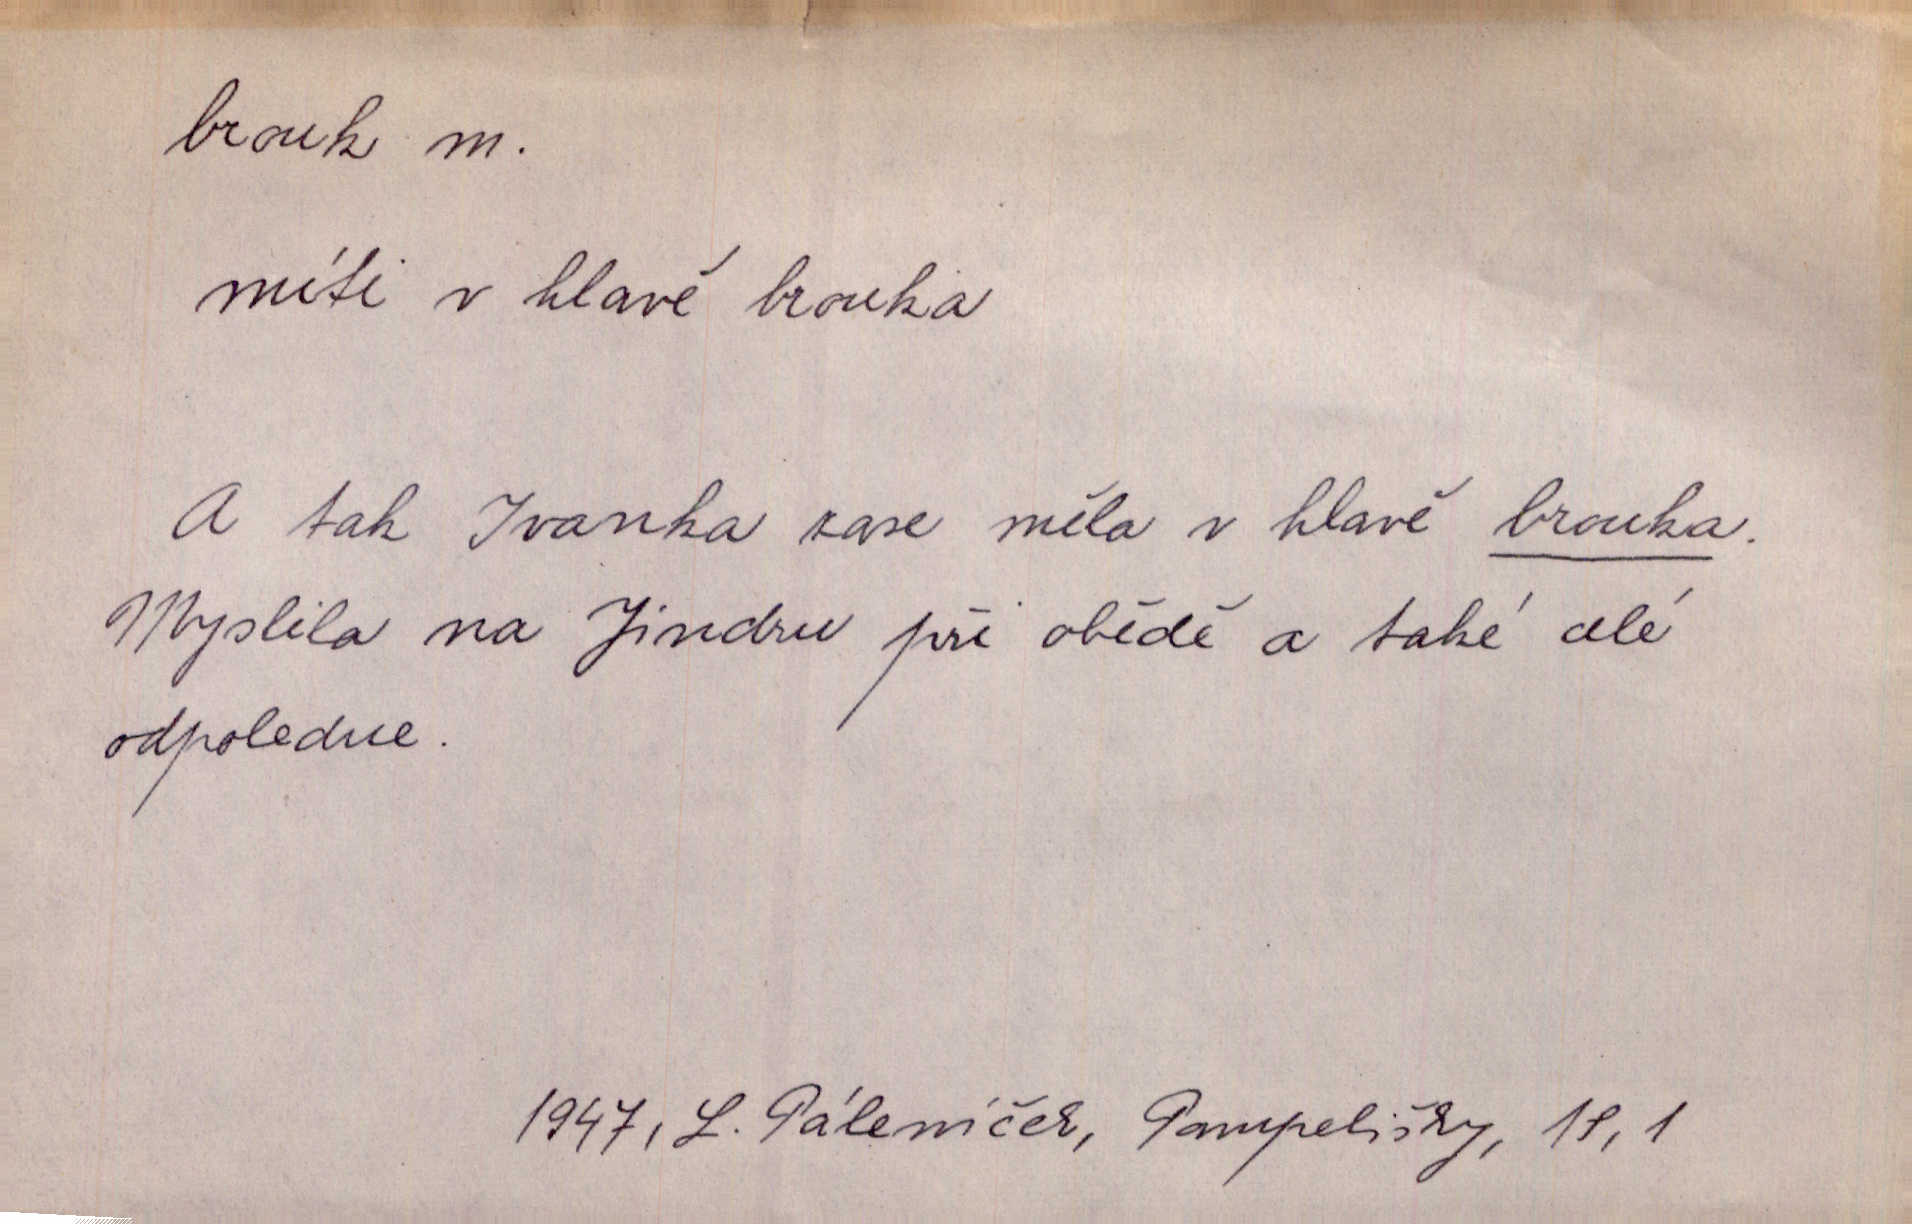 brouk m.
míti v hlavě brouka
A tak Ivanka zase měla v hlavě brouka.
Myslila na Jindru při obědě a také celé
odpoledne.
1947, L. Páleníček, Pampelišky, 18, 1